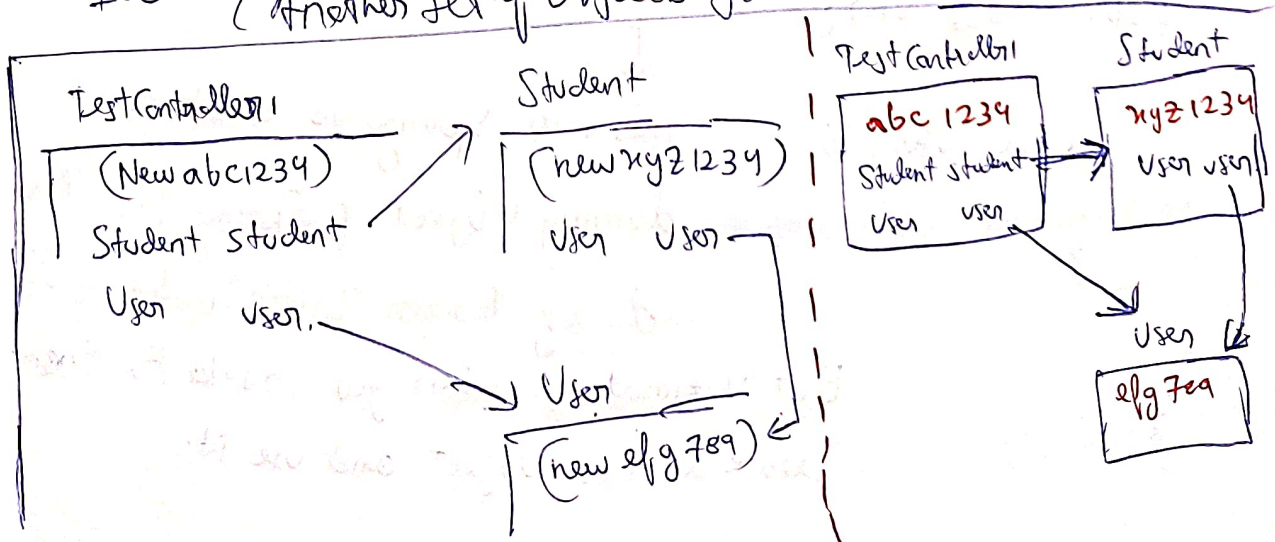 (Another set of objects
TestController1
Student
(New abc1234)
Student student
User user.
(new xyz1234)
User User
User
(new efg 789)
TestController1
Student
abc 1234
Student student
User user
xyz1234
User user
User
efg 789